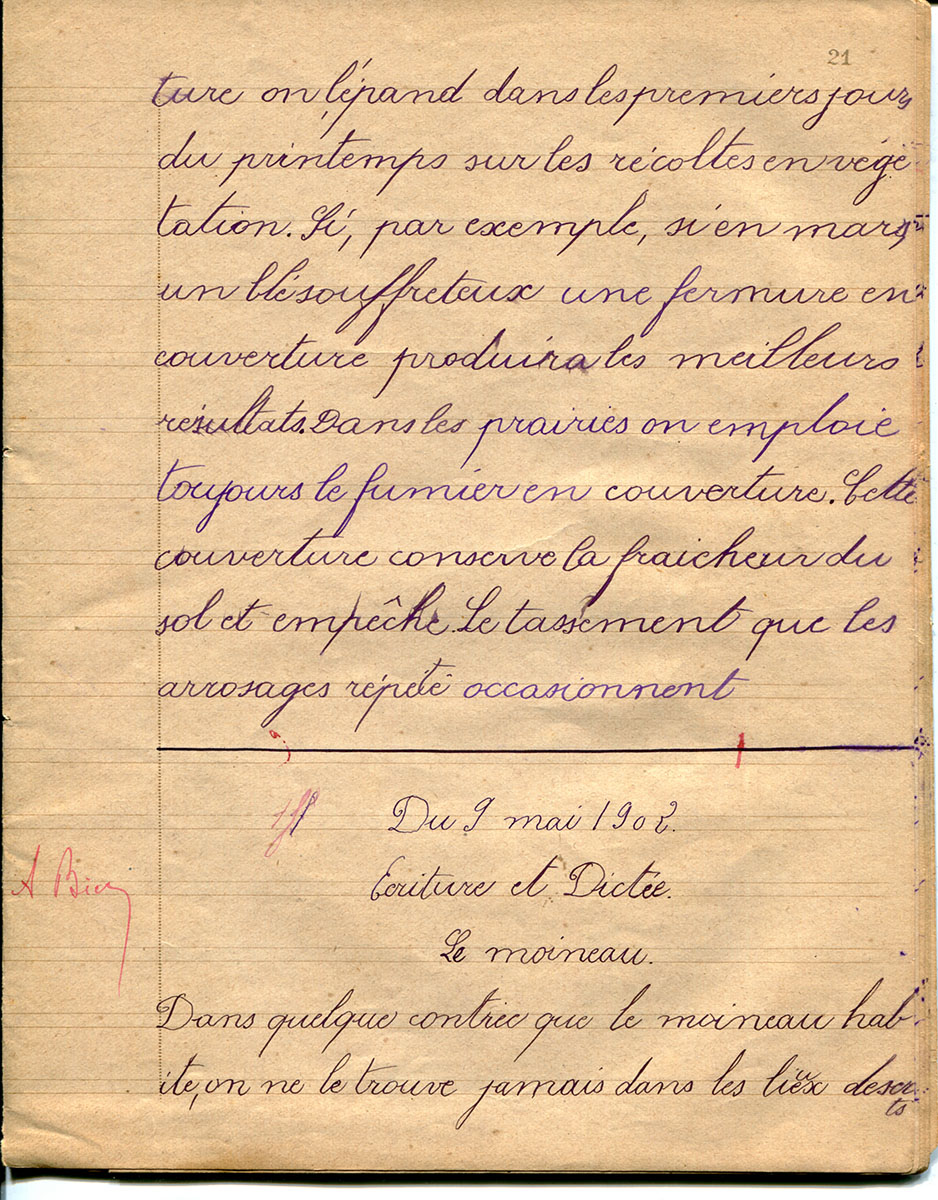 21
ture on l'épand dans les premiers jours
du printemps sur les récoltes en végé
tation. Si, par exemple, si en mars,
un blé souffreteux une fermure en
couverture produira les meilleurs
résultats. Dans les prairies on emploie
toujours le fumier en couverture. Cette
couverture conserve la fraicheur du
sol et empêche. Le tassement que les
arrosages répété occasionnent
Du 9 mai 1902.
Ecriture et Dictée.
A Bien
Le moineau.
Dans quelque contrée que le moineau hab
ite, on ne le trouve jamais dans les lieux deser
ts